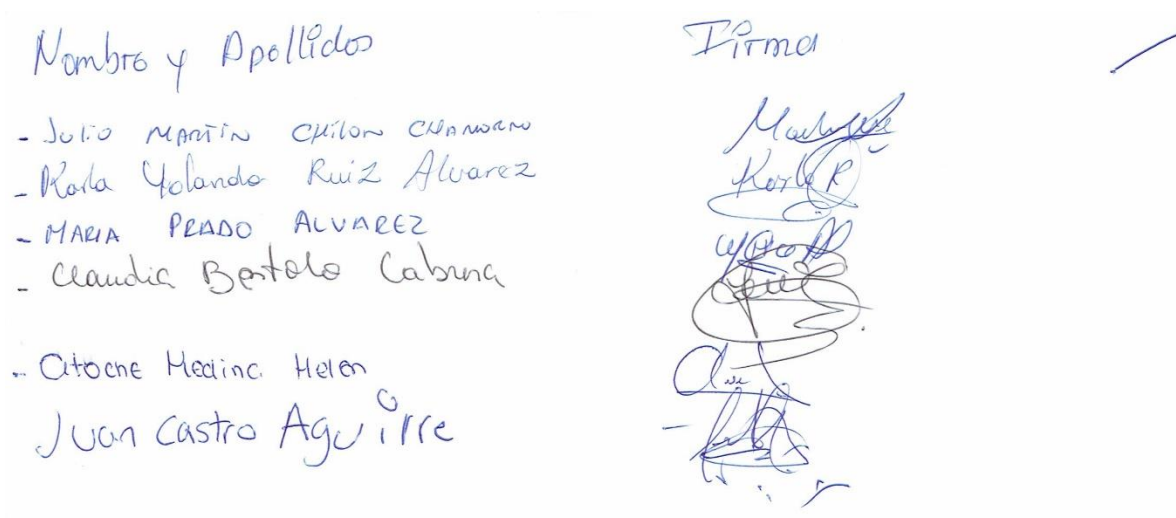 Nombre y Apellidos Firma
- Julio MARTIN CHILON CHAMORRO
- Karla Yolanda Ruiz Alvarez Karla R
- MARIA PRADO ALVAREZ
- Claudia Bertolo Cabrera
- Atoche Medina Helen
Juan Castro Aguirre